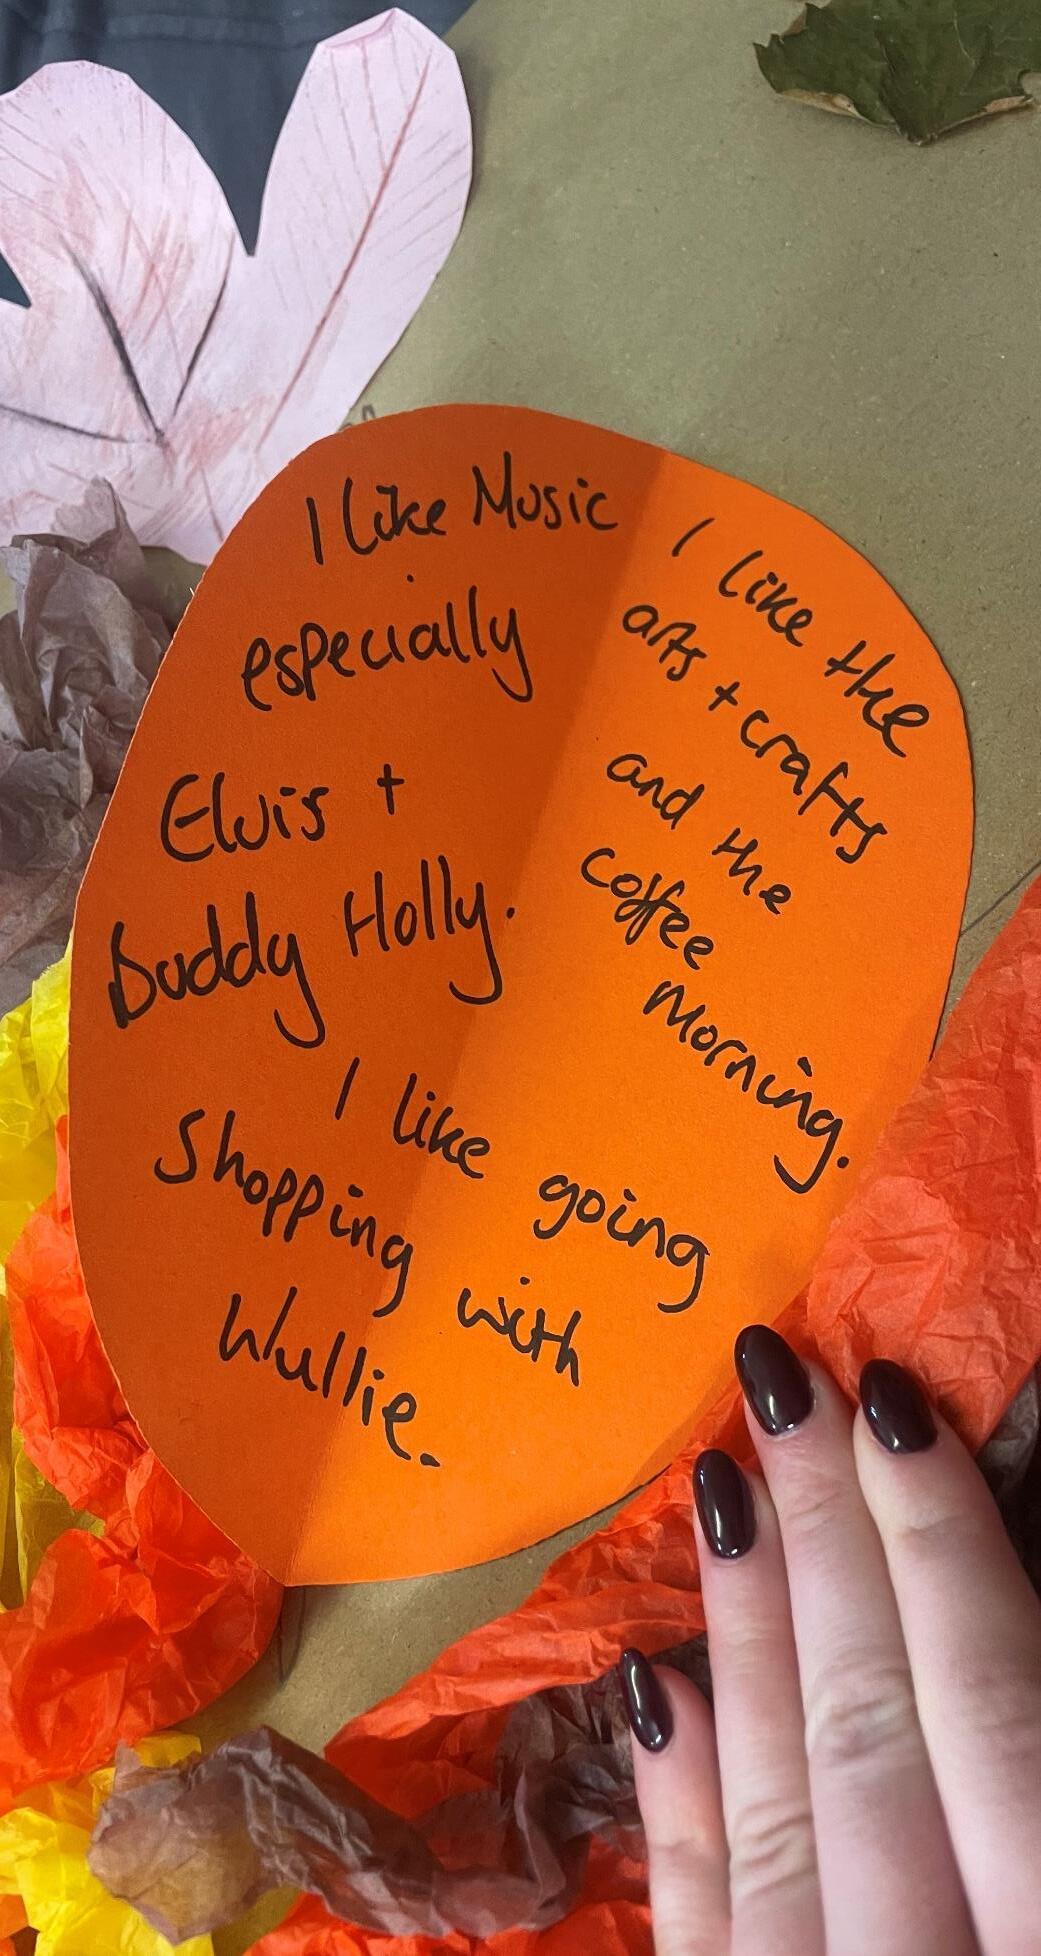 I like Music
especially
Elvis +
Buddy Holly.
I like the
arts + crafts
and the
coffee
Morning.
I like going
Shopping with
Wullie.